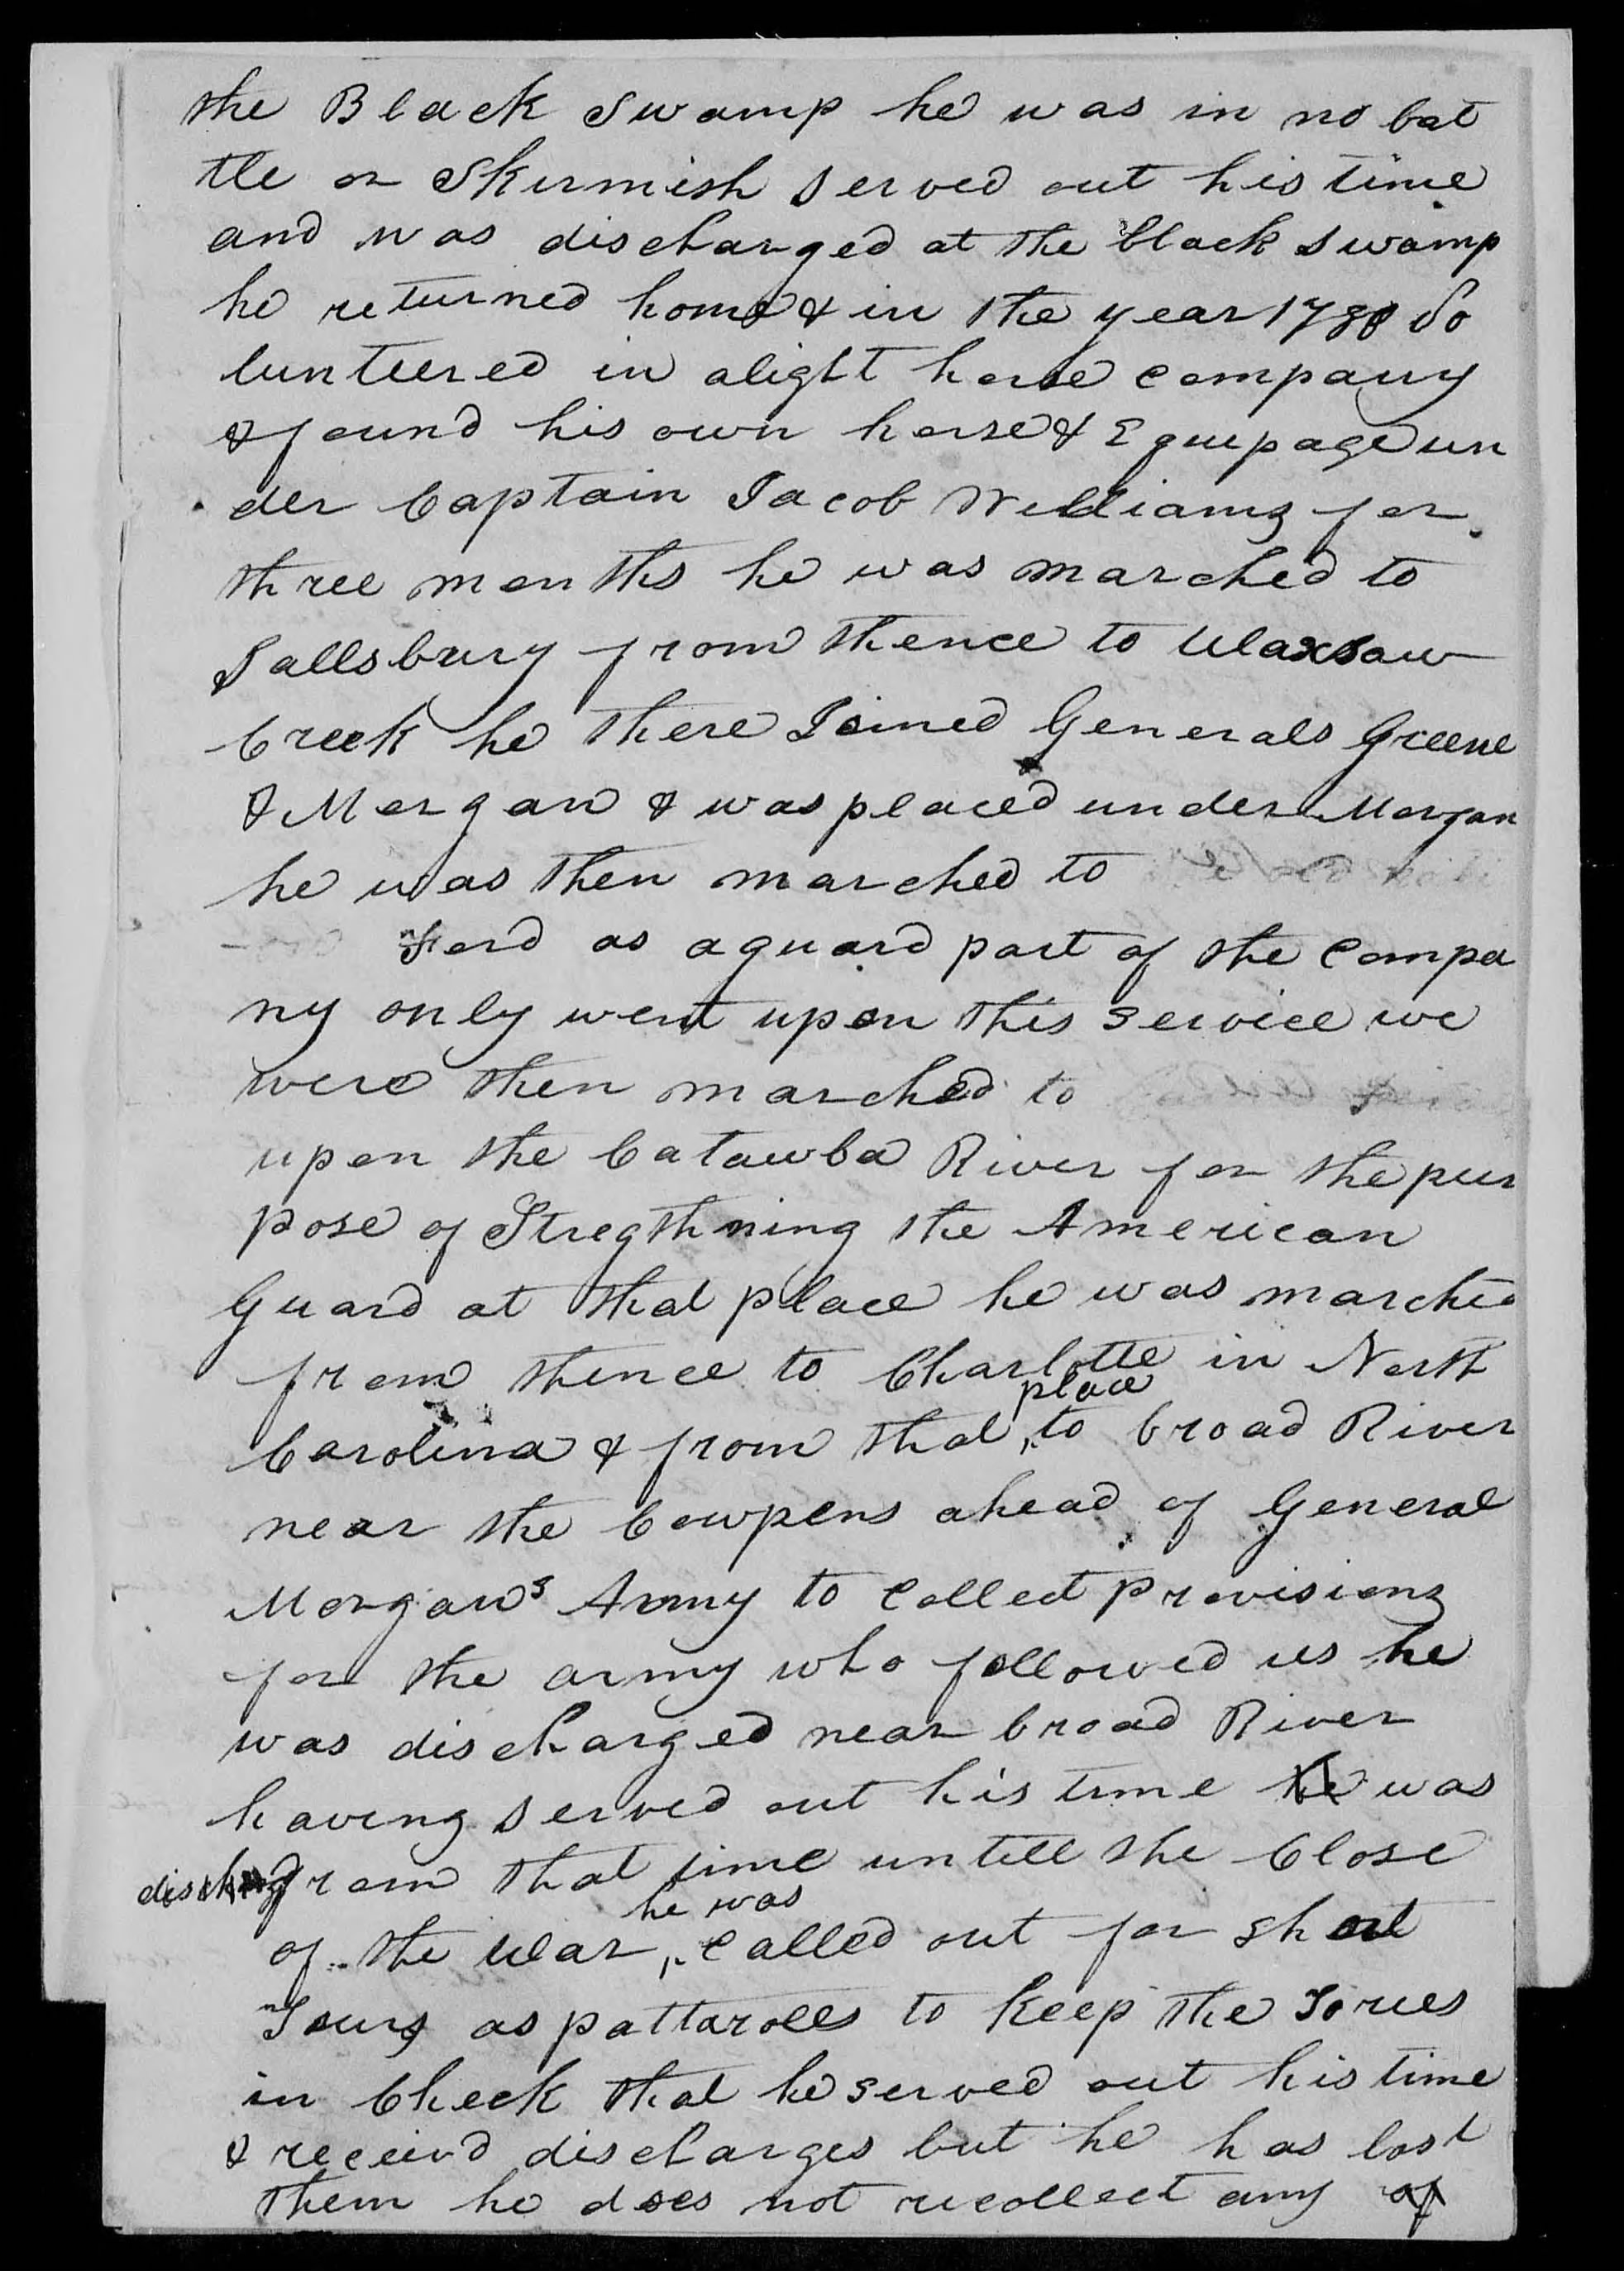 the Black Swamp he was in no bat
tle or Skirmish served out his time
and was discharged at the black swamp
he returned home & in the year 1780 Vo
lunteered in alight horse company
& found his own horse & Equipage un
der Captain Jacob Williams for
three months he was marched to
Sallsbury from thence to Waxsaw
Creek he there Joined Generals Greene
& Morgan & was placed under Morgan
he was then marched to
Ford as a guard part of the Compa
ny only went upon this service we
were then marched to
upon the Catawba River for the pur
pose of Stregthning the American
Guard at that place he was marched
from thence to Charlotte in North
Carolina & from that place to broad River
near the Cowpens ahead of General
Morgans Army to Collect provisions
for the army who followed us he
was discharged near broad River
having served out his time he was
from that time untill the Close
of the War, he was Called out for short
Tours as pattaroles to Keep the Tories
in Check that he served out his time
& receivd discharges but he has lost
them he does not recollect any of